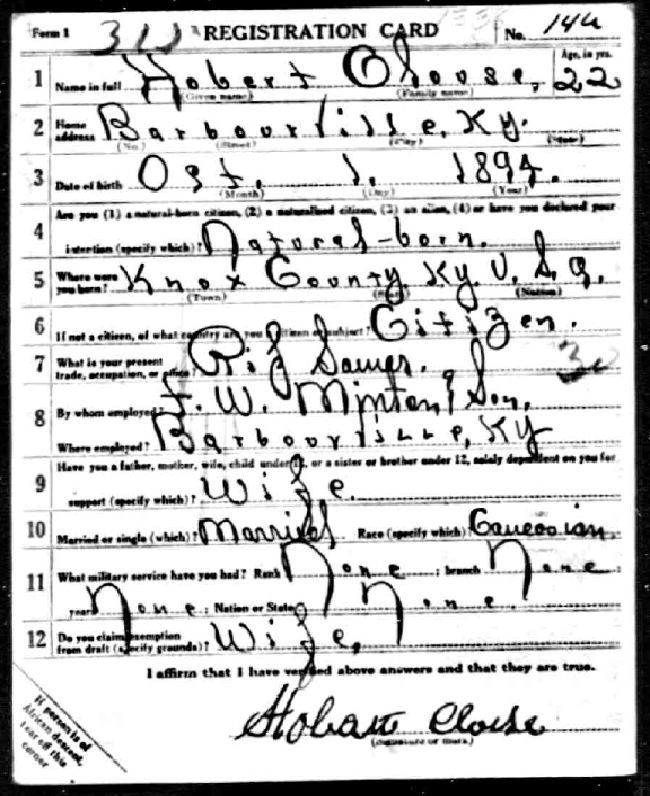 Form 1 313 REGISTRATION CARD No. 144
1 Name in full Hobert Clouse, Age, in yrs. 22
(Given name) (Family name)
2 Home address Barbourville, Ky.
(No.) (Street) (City) (State)
3 Date of birth Oct. 1. 1894.
(Month) (Day) (Year)
Are you (1) a natural-born citizen, (2) a naturalized citizen, (3) an alien, (4) or have you declared your
4 intention (specify which)? Natural-born.
5 Where were you born? Knox County Ky. U. S. A.
(Town) (State) (Nation)
6 If not a citizen, of what country are you a citizen or subject? Citizen.
7 What is your present trade, occupation, or office? Rif Sawer. 30
8 By whom employed? W. Minton & Son,
Where employed? Barbourville, Ky
Have you a father, mother, wife, child under 12, or a sister or brother under 12, solely dependent on you for
9 support (specify which)? Wife.
10 Married or single (which)? Married Race (specify which)? Caucasian.
11 What military service have you had? Rank None ; branch None ;
years None ; Nation or State None.
12 Do you claim exemption from draft (specify grounds)? Wife.
I affirm that I have verified above answers and that they are true.
Hobart Clouse
(Signature or mark)
If person is of
African descent,
tear off this
corner